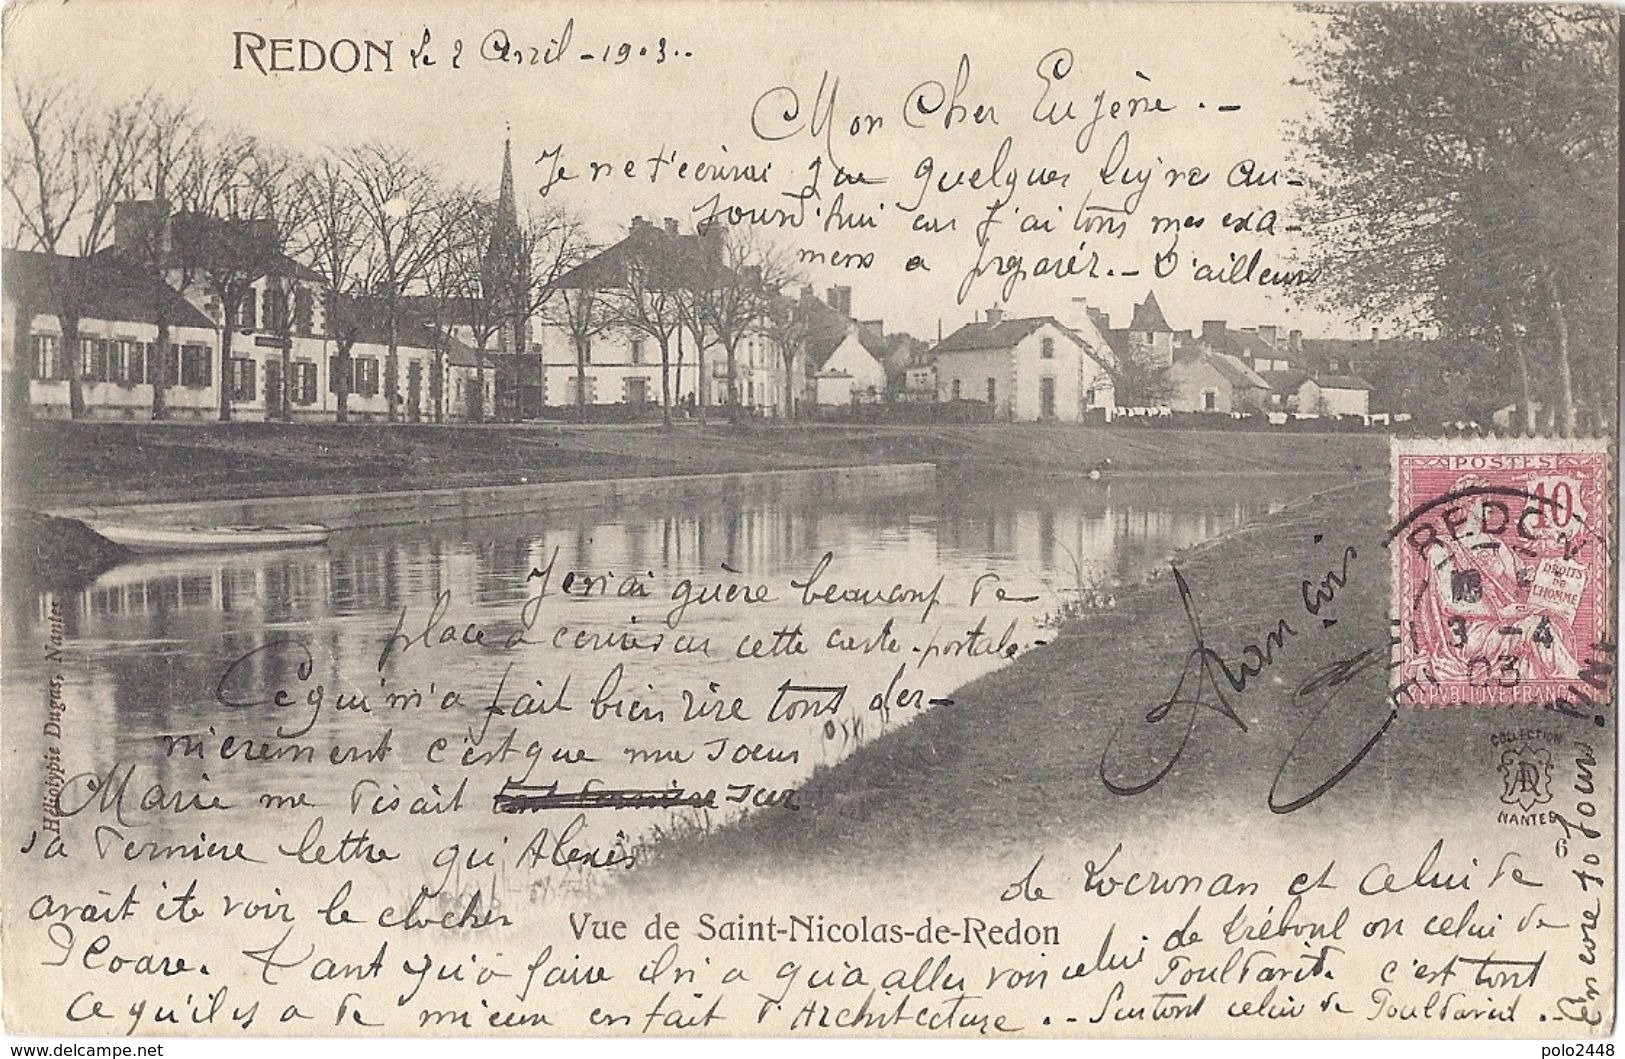 REDON le 2 Avril - 1903..
Mon Cher Eugène . -
Je ne t'écrirai que quelques lignes au-
jourd'hui car j'ai tous mes exa-
mens a préparer. - D'ailleurs
Je n'ai guère beaucoup de
place a écrire sur cette carte-postale-
Ce qui m'a fait bien rire tous der-
nièrement c'est que ma soeur
Marie me disait sur
sa dernière lettre qu'Alexis
avait été voir le clocher
Ploaré. Tant qu'à faire il n'a qu'a aller voir celui
de Locronan et celui de
de Tréboul ou celui de
Pouldavid. c'est tout
ce qu'il y a de mieux en fait d'Architecture . - Surtout celui de Pouldavid . -
Encore 10 jours.
POSTES
10
DROITS
DE
L'HOMME
REPUBLIQUE FRANÇAISE
REDON
3 -4
03
COLLECTION
AD
NANTES
6
Vue de Saint-Nicolas-de-Redon
Héliotypie Dugas, Nantes
www.delcampe.net
polo2448